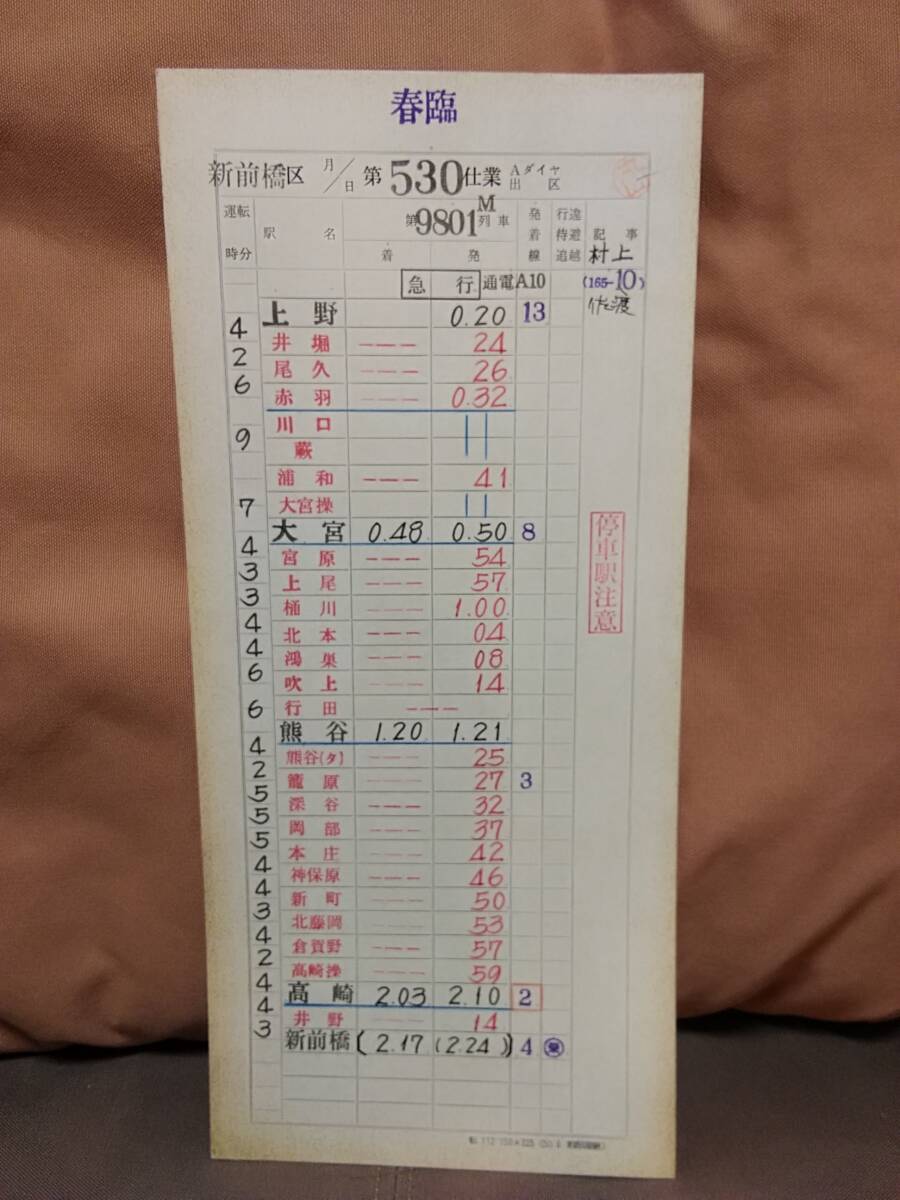 春臨
新前橋区 月/日 第530仕業 Aダイヤ出区
運転時分 駅名 第9801M列車 着 発 発着線 行違待避追越 記事
村上
急行 通電A10 (165-10)
上野 0.20 13 佐渡
4
井堀 --- 24
2
尾久 --- 26
6
赤羽 --- 0.32
川口 ||
9
蕨
浦和 --- 41
7
大宮操 ||
大宮 0.48 0.50 8
停車駅注意
4
宮原 --- 54
3
上尾 --- 57
3
桶川 --- 1.00
4
北本 --- 04
4
鴻巣 --- 08
6
吹上 --- 14
行田 ---
6
熊谷 1.20 1.21
4
熊谷(タ) --- 25
2
籠原 --- 27 3
5
深谷 --- 32
5
岡部 --- 37
5
本庄 --- 42
4
神保原 --- 46
4
新町 --- 50
3
北藤岡 --- 53
4
倉賀野 --- 57
2
高崎操 --- 59
4
高崎 2.03 2.10 2
4
井野 --- 14
3
新前橋 (2.17 (2.24)) 4 乗